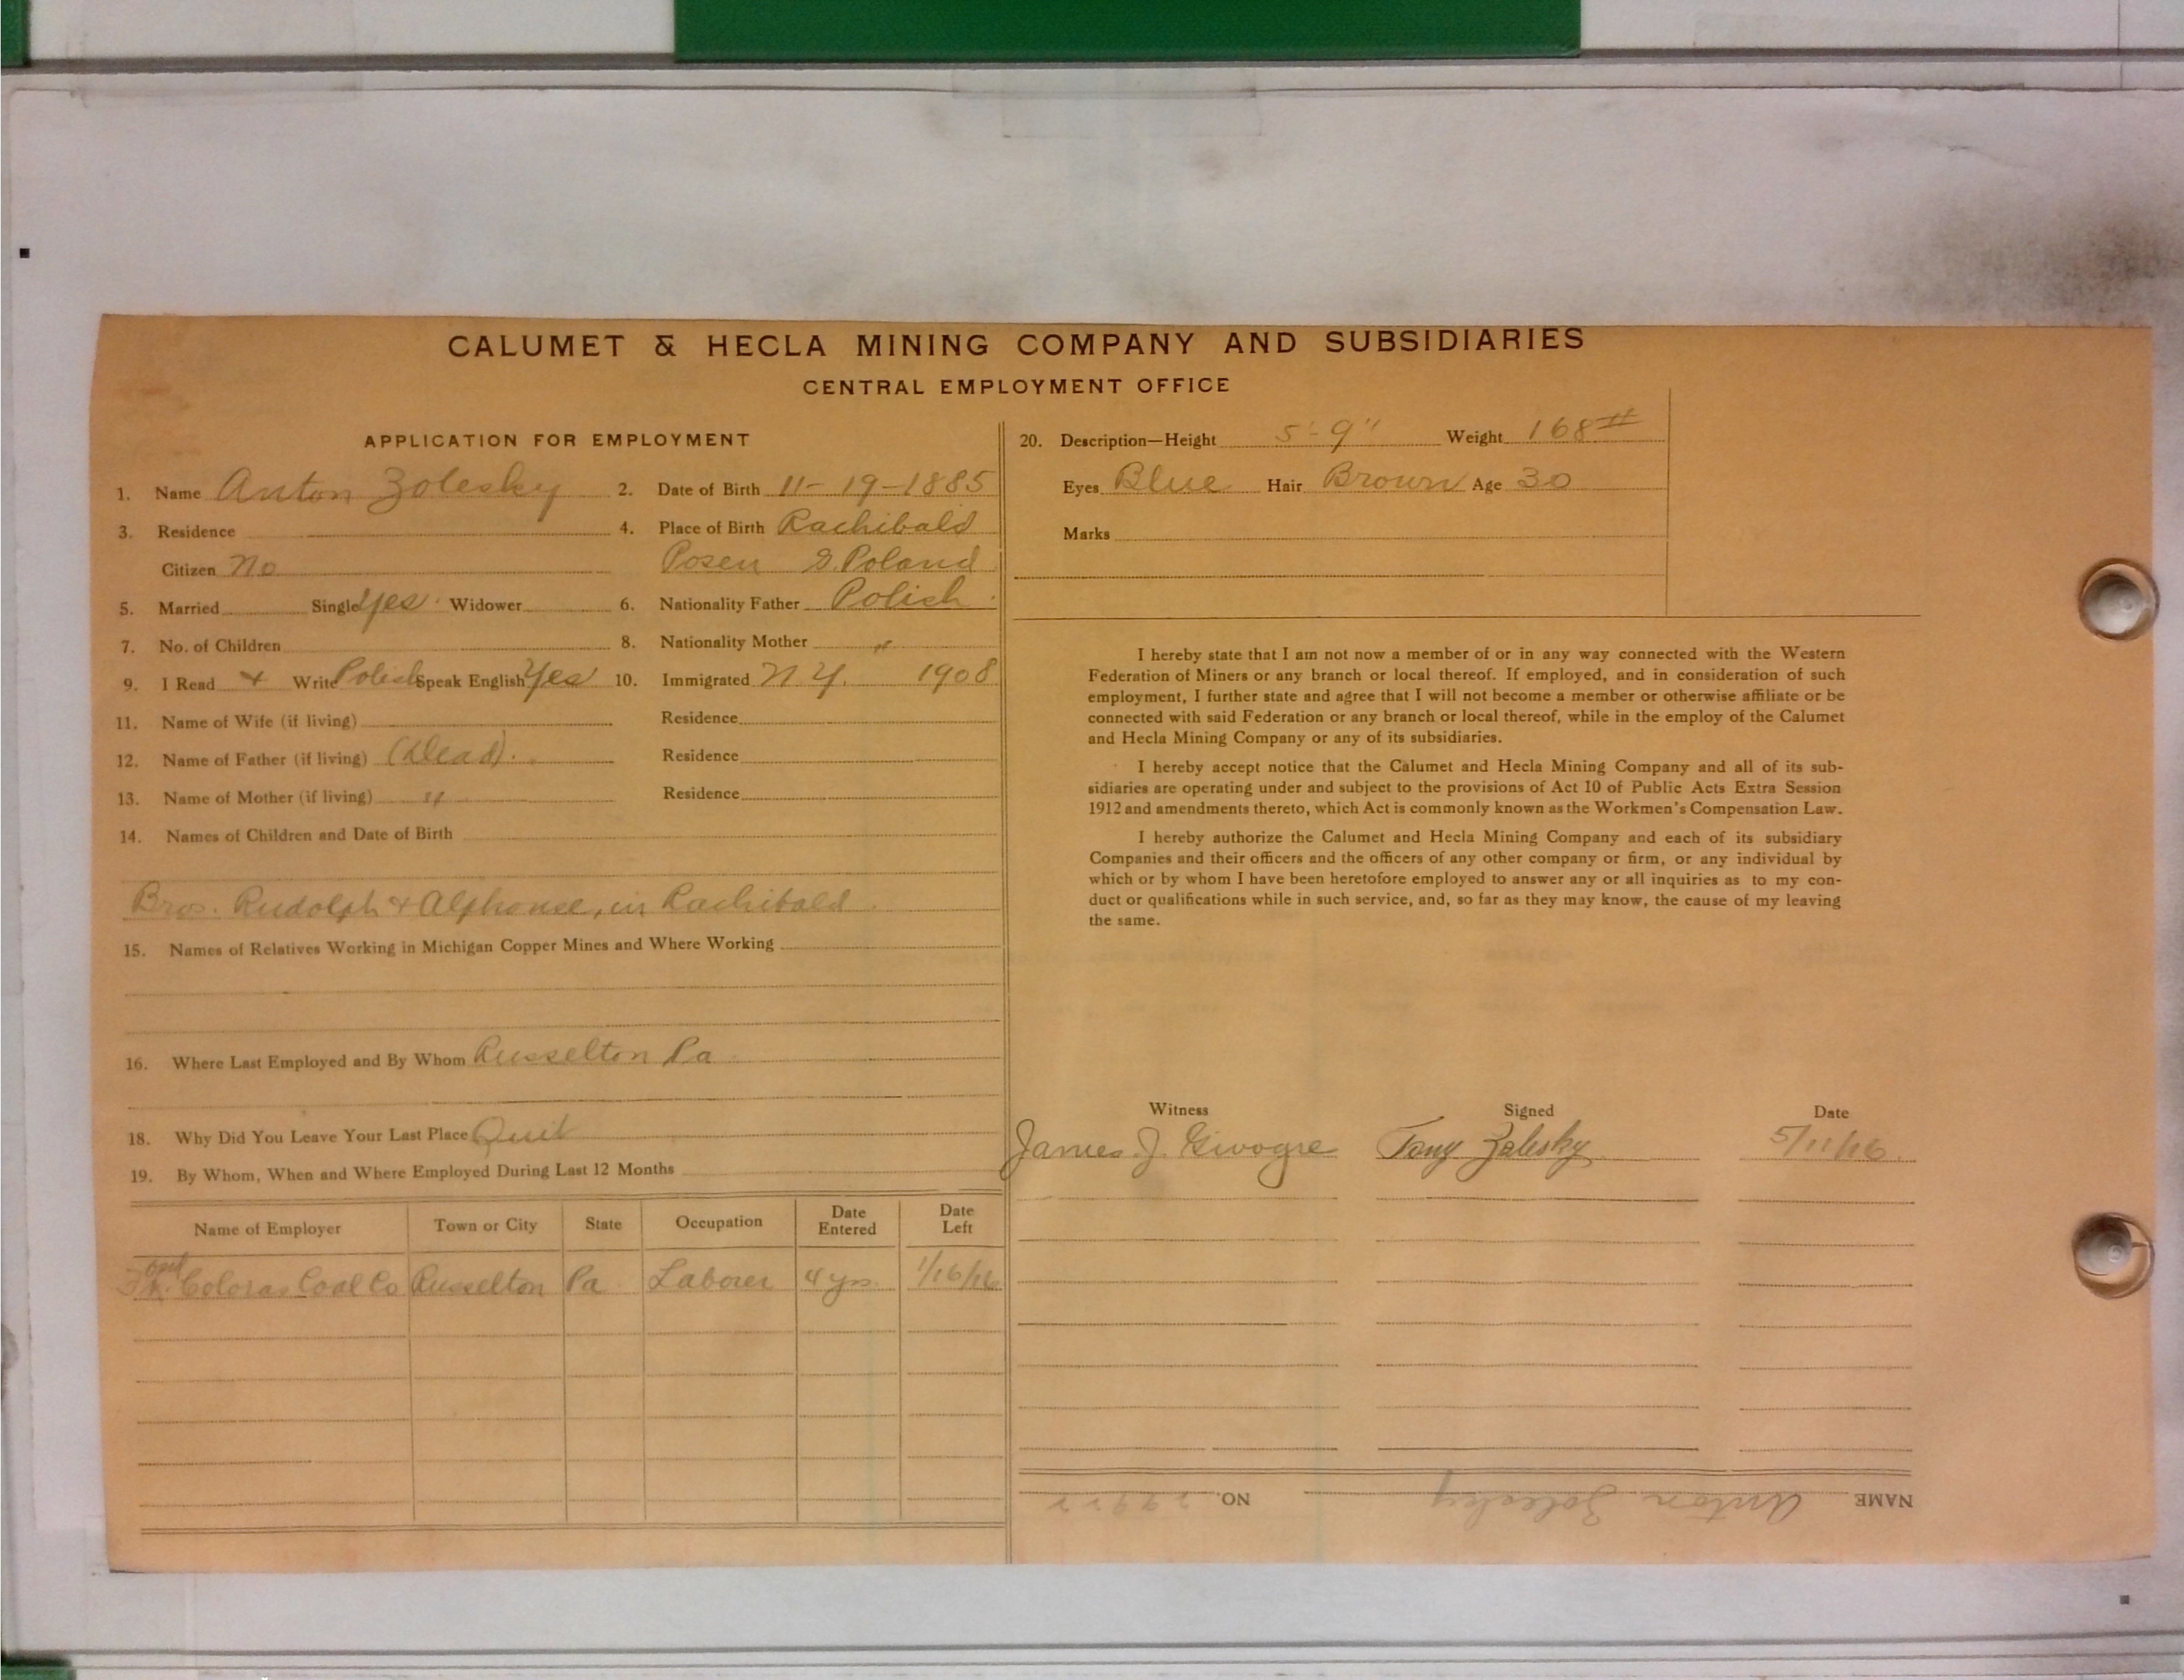 CALUMET & HECLA MINING COMPANY AND SUBSIDIARIES
CENTRAL EMPLOYMENT OFFICE
APPLICATION FOR EMPLOYMENT
1. Name Anton Zolesky 2. Date of Birth 11-19-1885
3. Residence 4. Place of Birth Rachibald
Citizen No Posen G. Poland
5. Married Single Yes Widower 6. Nationality Father Polish
7. No. of Children 8. Nationality Mother "
9. I Read + Write Polish Speak English Yes 10. Immigrated N.Y. 1908
11. Name of Wife (if living) Residence
12. Name of Father (if living) (Dead). Residence
13. Name of Mother (if living) " Residence
14. Names of Children and Date of Birth
Bros. Rudolph + Alphonse, in Rachibald.
15. Names of Relatives Working in Michigan Copper Mines and Where Working
16. Where Last Employed and By Whom Russelton Pa
18. Why Did You Leave Your Last Place Quit
19. By Whom, When and Where Employed During Last 12 Months
Name of Employer Town or City State Occupation Date Entered Date Left
Coal Co Russelton Pa Laborer 4 yrs. 1/16/16
20. Description—Height 5'-9" Weight 168#
Eyes Blue Hair Brown Age 30
Marks
I hereby state that I am not now a member of or in any way connected with the Western
Federation of Miners or any branch or local thereof. If employed, and in consideration of such
employment, I further state and agree that I will not become a member or otherwise affiliate or be
connected with said Federation or any branch or local thereof, while in the employ of the Calumet
and Hecla Mining Company or any of its subsidiaries.
I hereby accept notice that the Calumet and Hecla Mining Company and all of its sub-
sidiaries are operating under and subject to the provisions of Act 10 of Public Acts Extra Session
1912 and amendments thereto, which Act is commonly known as the Workmen's Compensation Law.
I hereby authorize the Calumet and Hecla Mining Company and each of its subsidiary
Companies and their officers and the officers of any other company or firm, or any individual by
which or by whom I have been heretofore employed to answer any or all inquiries as to my con-
duct or qualifications while in such service, and, so far as they may know, the cause of my leaving
the same.
Witness Signed Date
James J. Givogre Tony Zalesky 5/11/16.
NAME Anton Zolesky NO.